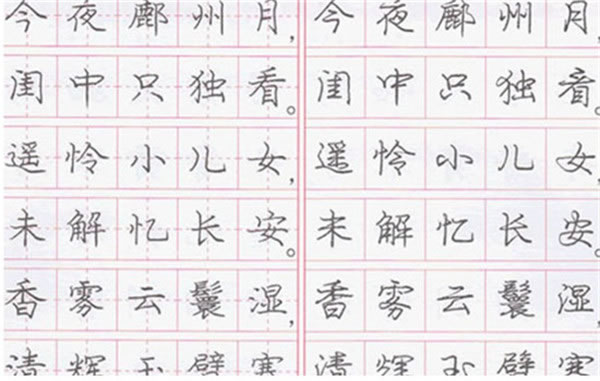 今夜鄜州月,
闺中只独看。
遥怜小儿女,
未解忆长安。
香雾云鬟湿,
清辉玉臂寒
今夜鄜州月,
闺中只独看。
遥怜小儿女,
未解忆长安。
香雾云鬟湿,
清辉玉臂寒